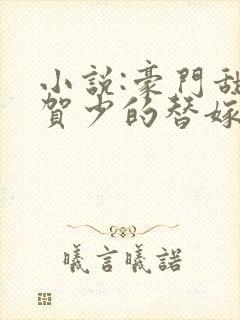 小說:豪門甜
賀少的替嫁
曦言曦諾